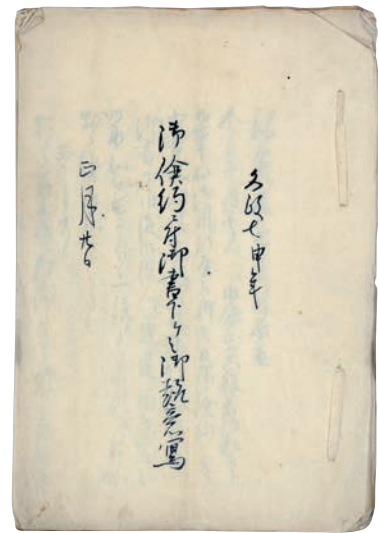 文政七申年
御倹約ニ付御書下ケ之御趣意寫
正月廿日